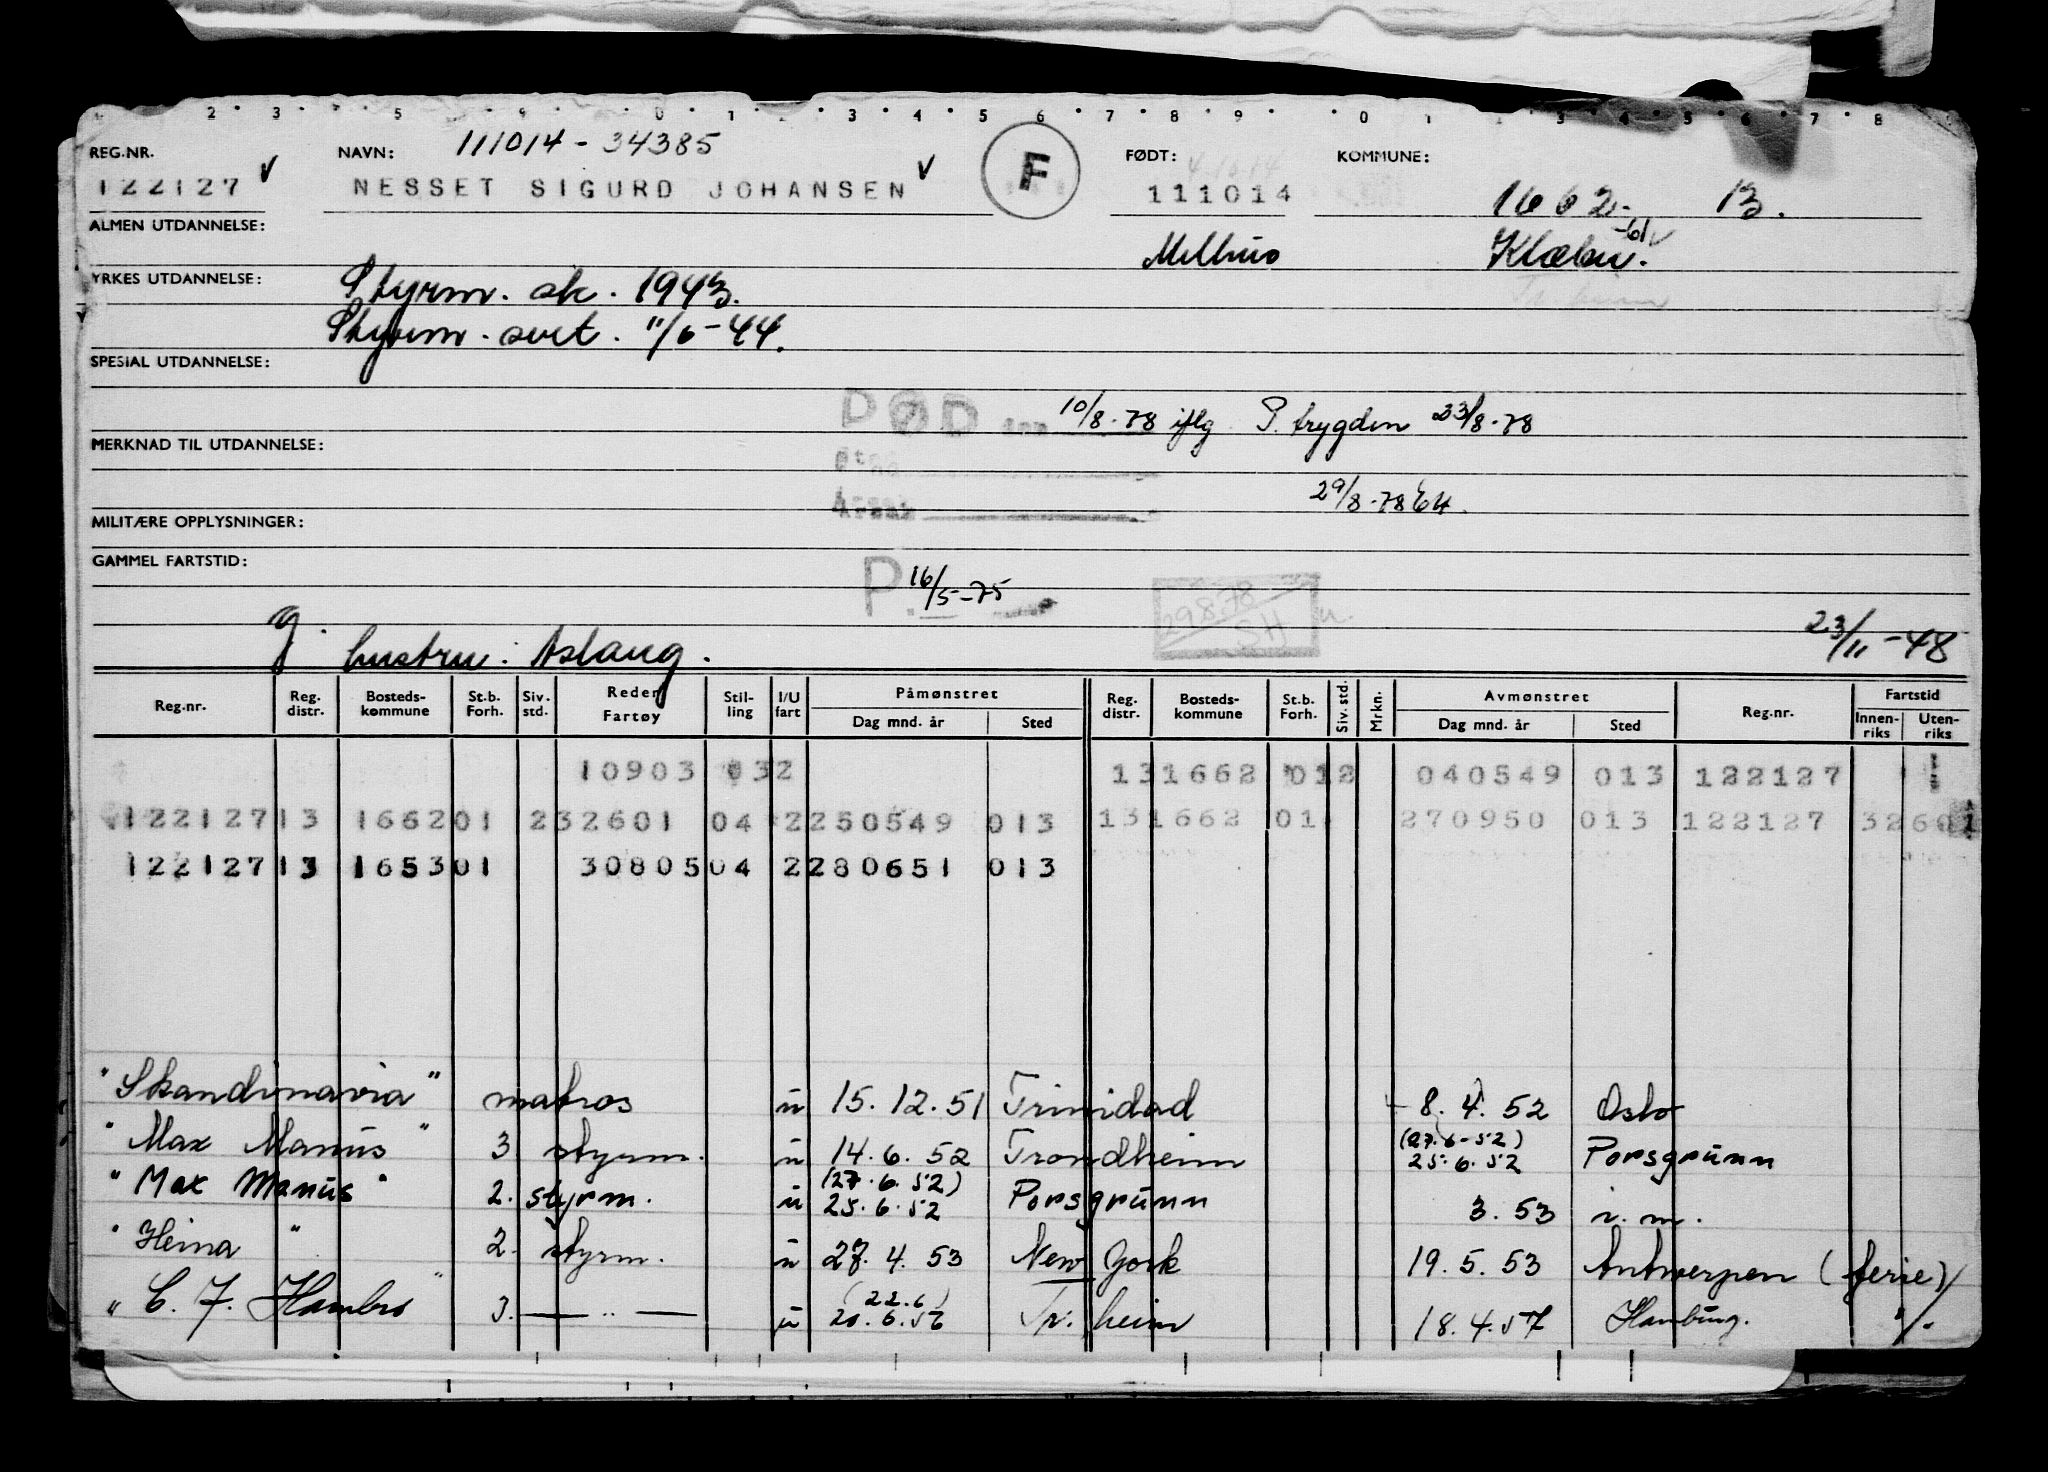 2 3 5 0 1 2 3 4 5 6 7 8 9 0 1 3 4 5 6 7 8
REG.NR. NAVN: 111014 - 34385 F FØDT: KOMMUNE:
122127 NESSET SIGURD JOHANSEN 111014 1662 - 13.
ALMEN UTDANNELSE: Melhus Klæbu. -61
YRKES UTDANNELSE: Styrm. sk. 1943.
Styrm. sert. 11/6-44.
SPESIAL UTDANNELSE:
DØD den 10/8-78 iflg P. trygden 23/8-78
MERKNAD TIL UTDANNELSE:
Årsak 29/8-78
MILITÆRE OPPLYSNINGER:
GAMMEL FARTSTID:
P. 16/5-75 29878 SH
g. hustru: Aslaug. 23/11-48
Reg.nr. Reg. distr. Bosteds-kommune St.b. Forh. Siv. std. Reder Fartøy Stil-ling I/U fart Påmønstret Dag mnd. år Sted Reg. distr. Bosteds-kommune St.b. Forh. Siv. std. Mrkn. Avmønstret Dag mnd. år Sted Reg.nr. Fartstid Innen-riks Uten-riks
10903 032 131662 012 040549 013 122127 1
122127 13 166201 232601 04 2250549 013 131662 01 270950 013 122127 3260
122127 13 165301 30805 04 2280651 013
"Skandinavia" matros u 15.12.51 Trinidad 8.4.52 Oslo
"Max Manus" 3 styrm. u 14.6.52 Trondheim (27.6-52) 25.6.52 Porsgrunn
"Max Manus" 2. styrm. u (27.6.52) 25.6.52 Porsgrunn 3.53 i.m.
"Heina" 2. styrm. u 27.4.53 New York 19.5.53 Antwerpen (ferie)
"C. J. Hambro" 3. — " — u (22.6) 20.6.56 Tr.heim 18.4.57 Hamburg. "/.